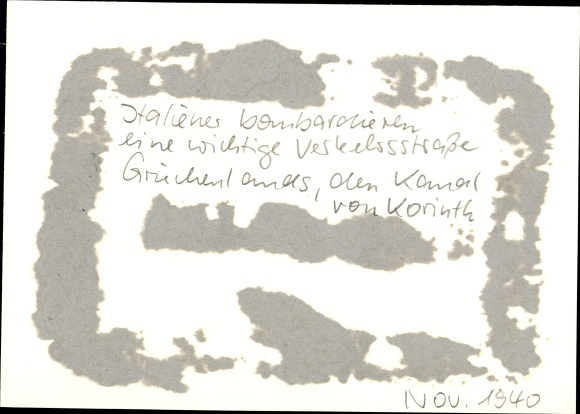 Italiener bombardieren
eine wichtige Verkehrsstraße
Griechenlands, den Kanal
von Korinth
Nov. 1940